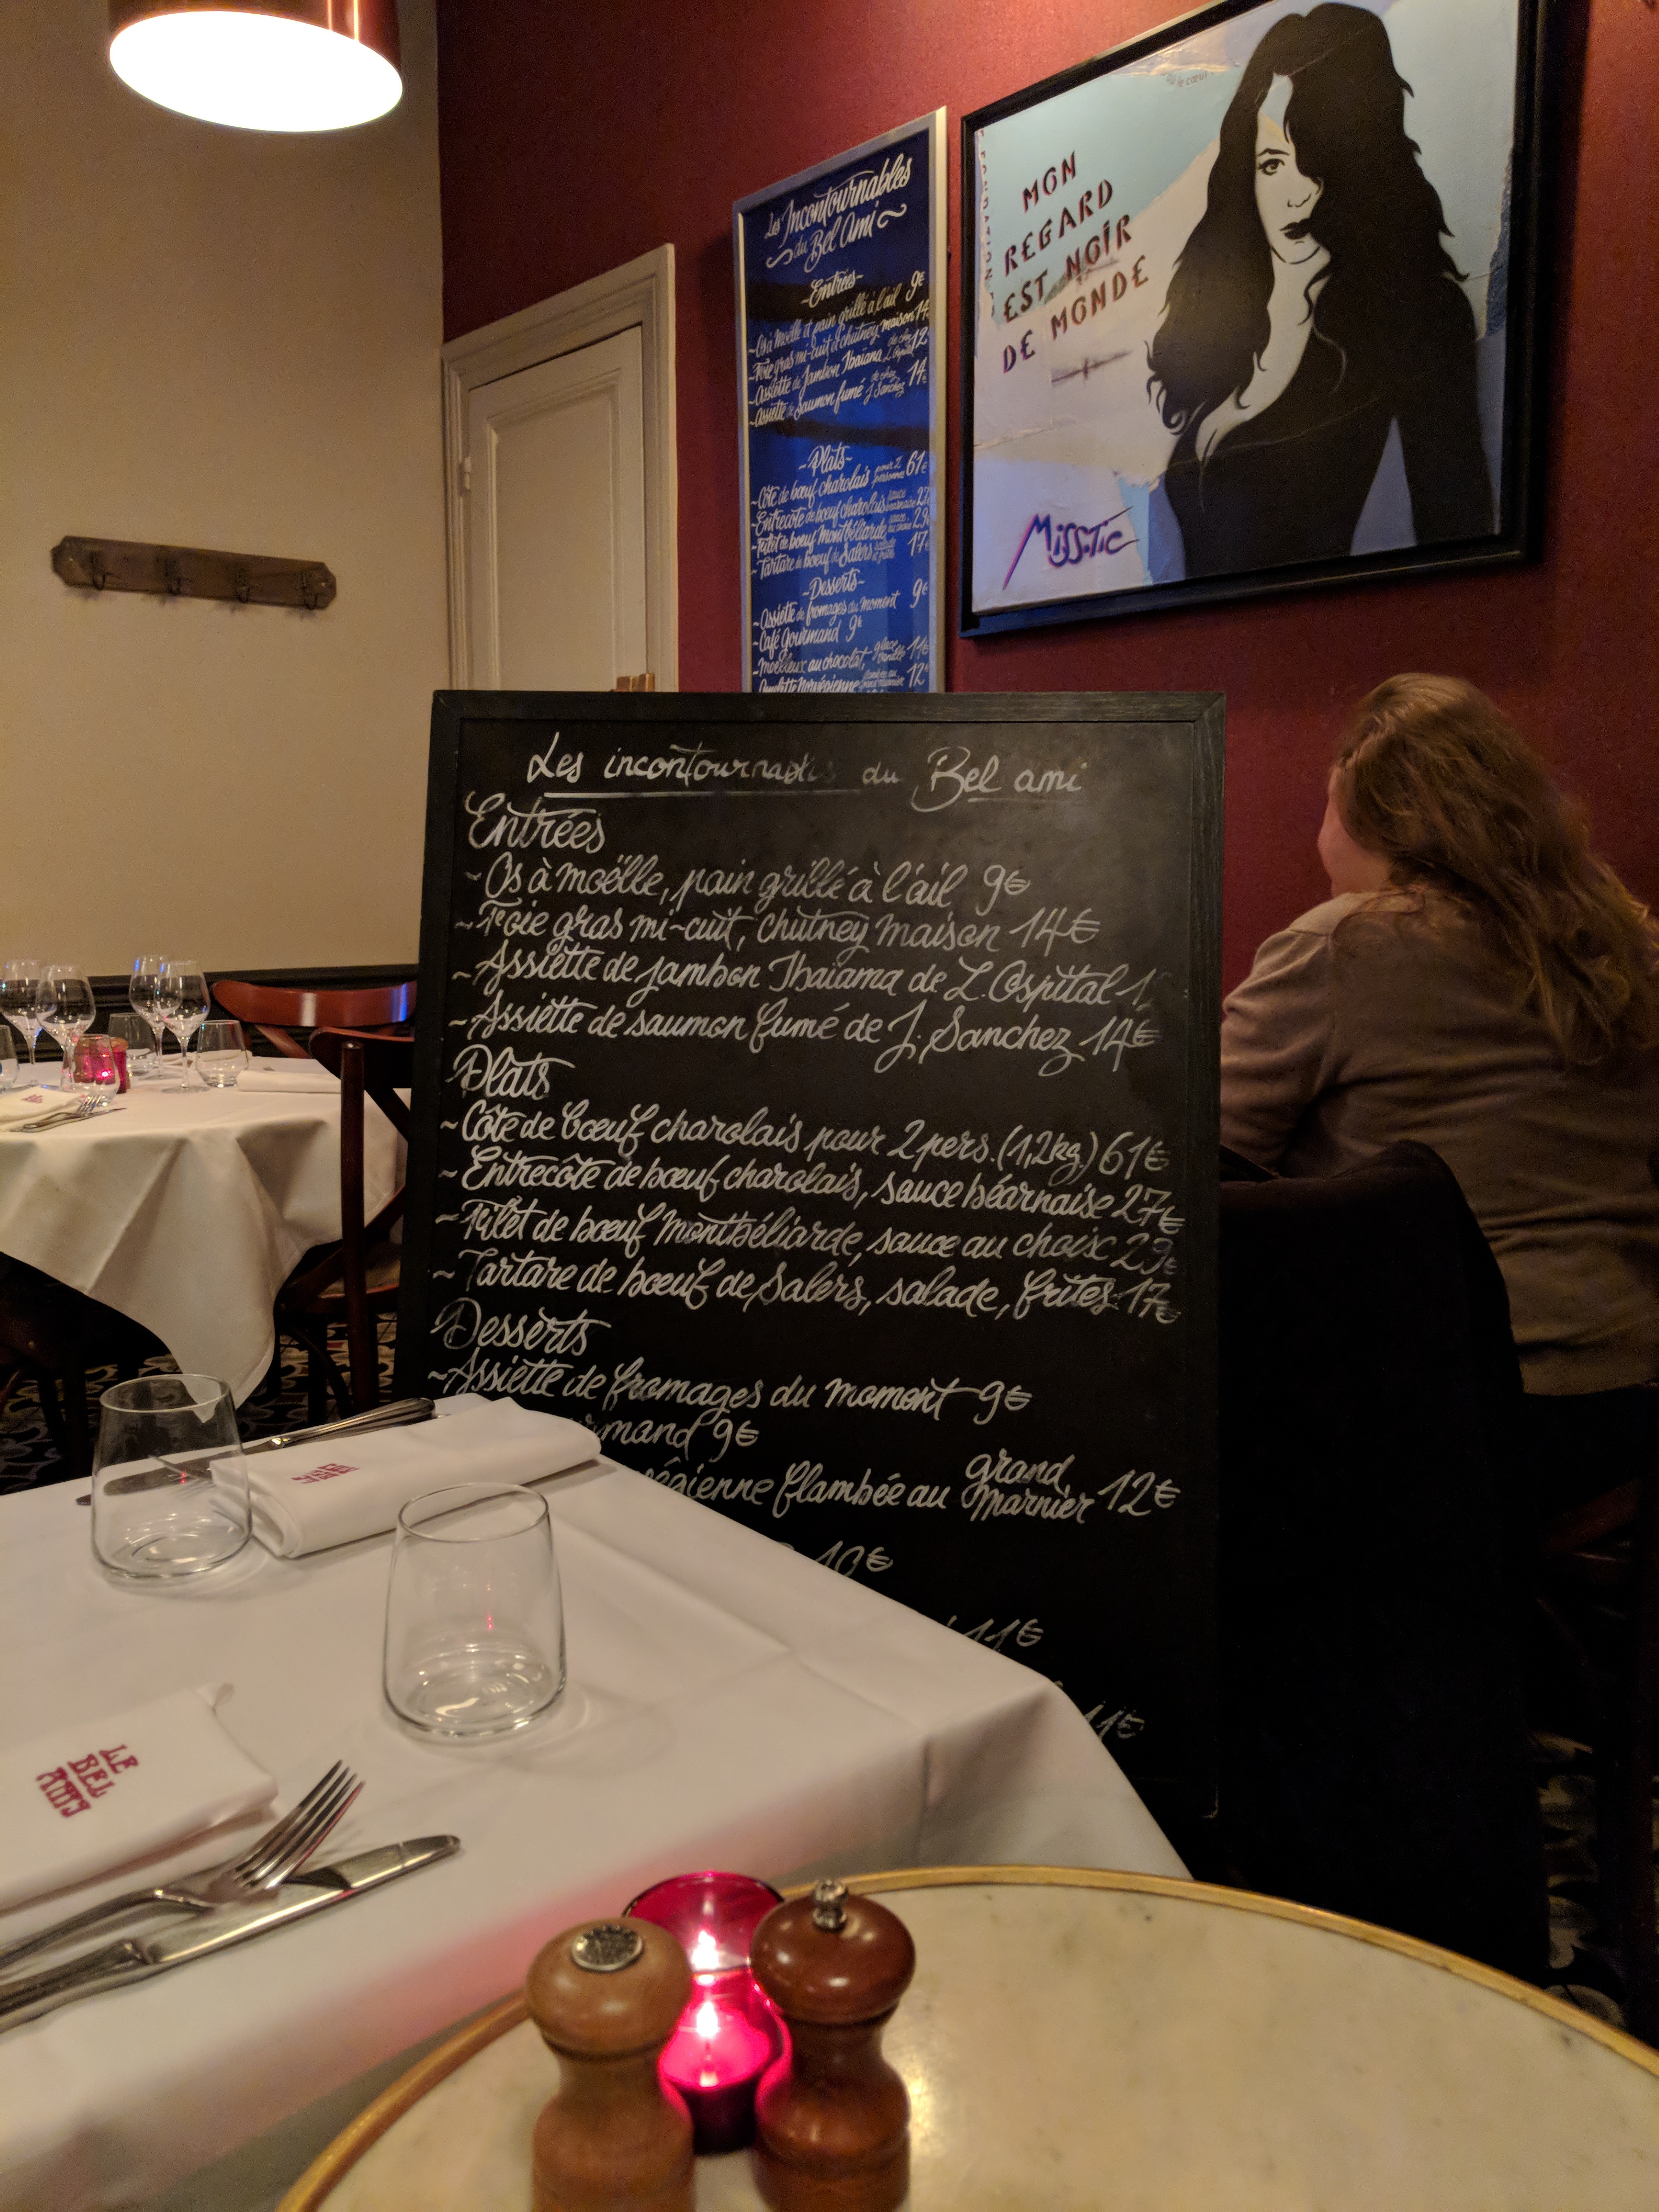 Les Incontournables
du Bel Ami
~Entrées~
~Os à Moëlle et pain grillé à l'ail 9€
~Foie gras mi-cuit et chutney maison 14
~Assiette de Jambon Ibaïana de chez L. Ospital 12
~Assiette de Saumon fumé de chez J. Sanchez 14€
~Plats~
~Côte de bœuf charolais pour 2 personnes 61€
~Entrecôte de bœuf charolais sauce béarnaise 27
~Filet de bœuf Montbéliarde sauce 29
~Tartare de bœuf de Salers 17€
~Desserts~
~Assiette de fromages du moment 9€
~Café Gourmand 9€
~Moelleux au chocolat, glace vanille 11€
12€
MON
REGARD
EST NOIR
DE MONDE
Miss.Tic
Les incontournables du Bel ami
Entrées
~Os à moëlle, pain grillé à l'ail 9€
~Foie gras mi-cuit, chutney maison 14€
~Assiette de jambon Ibaïama de L. Ospital 1
~Assiette de saumon fumé de J. Sanchez 14€
Plats
~Côte de bœuf charolais pour 2 pers. (1,2kg) 61€
~Entrecôte de bœuf charolais, sauce béarnaise 27€
~Filet de bœuf Montbéliarde, sauce au choix 29€
~Tartare de bœuf de Salers, salade, frites 17€
Desserts
~Assiette de fromages du moment 9€
rmand 9€
égienne flambée au grand marnier 12€
10€
11€
11€
LE
BEL
AMI